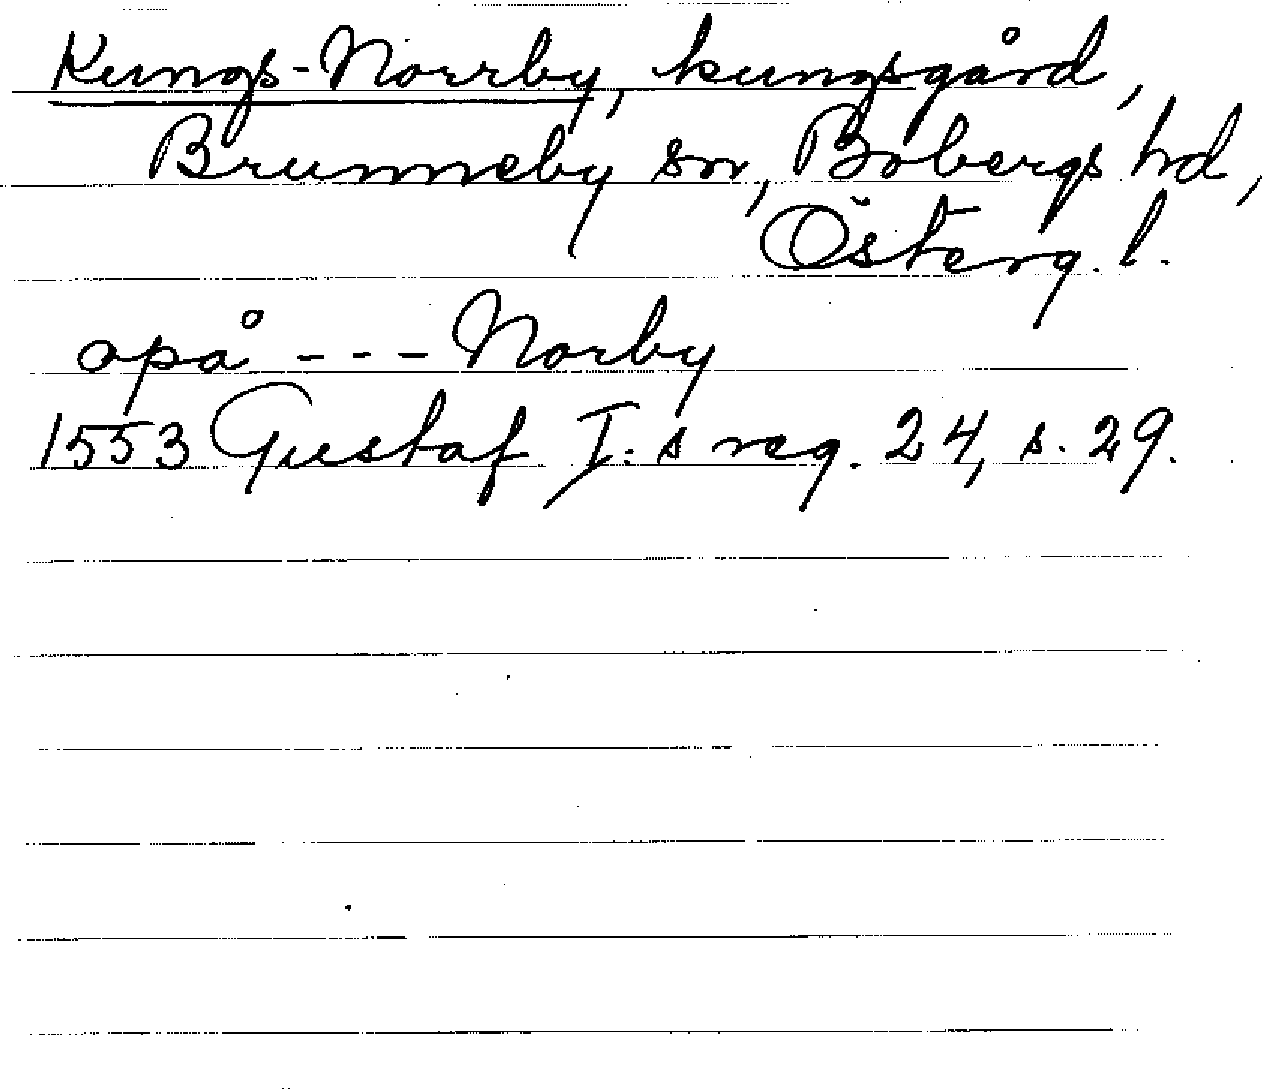 Kungs-Norrby, kungsgård,
Brunneby sn, Bobergs hd,
Österg. l.
opå --- Norby
1553 Gustaf I:s reg. 24, s. 29.